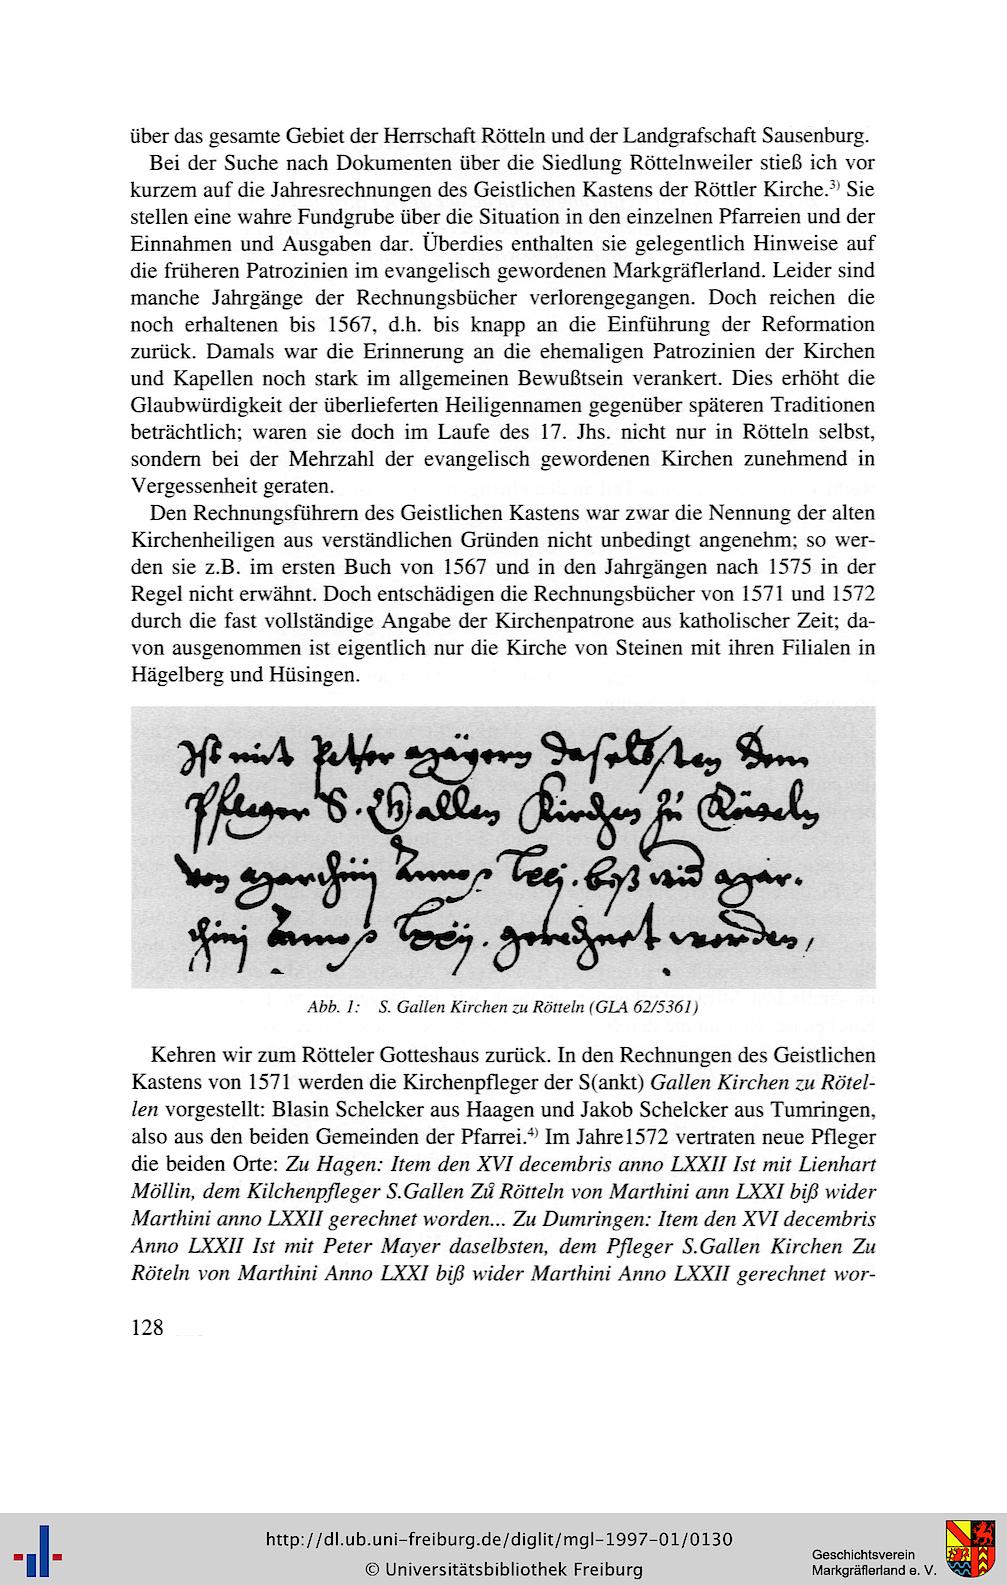 über das gesamte Gebiet der Herrschaft Rötteln und der Landgrafschaft Sausenburg.
Bei der Suche nach Dokumenten über die Siedlung Röttelnweiler stieß ich vor
kurzem auf die Jahresrechnungen des Geistlichen Kastens der Röttler Kirche.³⁾ Sie
stellen eine wahre Fundgrube über die Situation in den einzelnen Pfarreien und der
Einnahmen und Ausgaben dar. Überdies enthalten sie gelegentlich Hinweise auf
die früheren Patrozinien im evangelisch gewordenen Markgräflerland. Leider sind
manche Jahrgänge der Rechnungsbücher verlorengegangen. Doch reichen die
noch erhaltenen bis 1567, d.h. bis knapp an die Einführung der Reformation
zurück. Damals war die Erinnerung an die ehemaligen Patrozinien der Kirchen
und Kapellen noch stark im allgemeinen Bewußtsein verankert. Dies erhöht die
Glaubwürdigkeit der überlieferten Heiligennamen gegenüber späteren Traditionen
beträchtlich; waren sie doch im Laufe des 17. Jhs. nicht nur in Rötteln selbst,
sondern bei der Mehrzahl der evangelisch gewordenen Kirchen zunehmend in
Vergessenheit geraten.
Den Rechnungsführern des Geistlichen Kastens war zwar die Nennung der alten
Kirchenheiligen aus verständlichen Gründen nicht unbedingt angenehm; so wer-
den sie z.B. im ersten Buch von 1567 und in den Jahrgängen nach 1575 in der
Regel nicht erwähnt. Doch entschädigen die Rechnungsbücher von 1571 und 1572
durch die fast vollständige Angabe der Kirchenpatrone aus katholischer Zeit; da-
von ausgenommen ist eigentlich nur die Kirche von Steinen mit ihren Filialen in
Hägelberg und Hüsingen.
Ist mit Petter Mäyern daselbsten dem
Pfleger S. Gallen Kirchen zu Röteln
von Marthinj Anno lxxj. biß wid Mar-
thinj Anno lxxij. gerechnet worden,
Abb. 1: S. Gallen Kirchen zu Rötteln (GLA 62/5361)
Kehren wir zum Rötteler Gotteshaus zurück. In den Rechnungen des Geistlichen
Kastens von 1571 werden die Kirchenpfleger der S(ankt) Gallen Kirchen zu Rötel-
len vorgestellt: Blasin Schelcker aus Haagen und Jakob Schelcker aus Tumringen,
also aus den beiden Gemeinden der Pfarrei.⁴⁾ Im Jahre1572 vertraten neue Pfleger
die beiden Orte: Zu Hagen: Item den XVI decembris anno LXXII Ist mit Lienhart
Möllin, dem Kilchenpfleger S.Gallen Zů Rötteln von Marthini ann LXXI biß wider
Marthini anno LXXII gerechnet worden... Zu Dumringen: Item den XVI decembris
Anno LXXII Ist mit Peter Mayer daselbsten, dem Pfleger S.Gallen Kirchen Zu
Röteln von Marthini Anno LXXI biß wider Marthini Anno LXXII gerechnet wor-
128
http://dl.ub.uni-freiburg.de/diglit/mgl-1997-01/0130
© Universitätsbibliothek Freiburg
Geschichtsverein
Markgräflerland e. V.